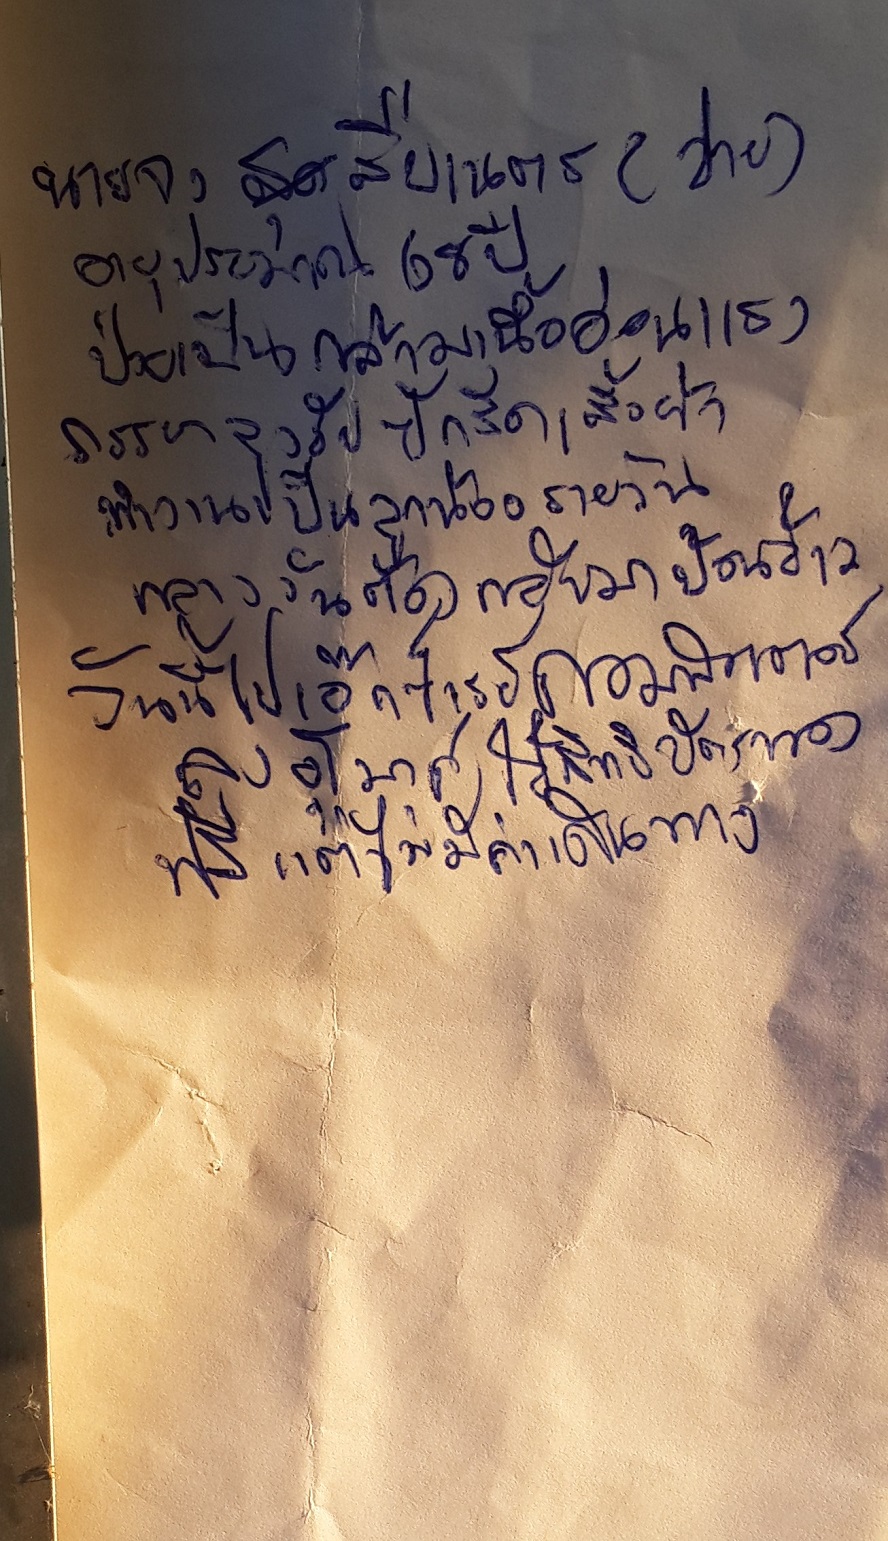 นายจง สุดสี่ยเนตร (ป่วย)
อายุประมาณ 68 ปี
ป่วยเป็นกล้ามเนื้ออ่อนแรง
ภรรยา รับปักรีดเสื้อผ้า
ทำงานเป็นลูกน้องรายวัน
กลางวันต้องกลับมาป้อนข้าว
วันนี้ไปเอ๊กซ์เรย์คอมพิวเตอร์
ใช้สิทธิบัตรทอง
ฟรี แต่ไม่มีค่าเดินทาง